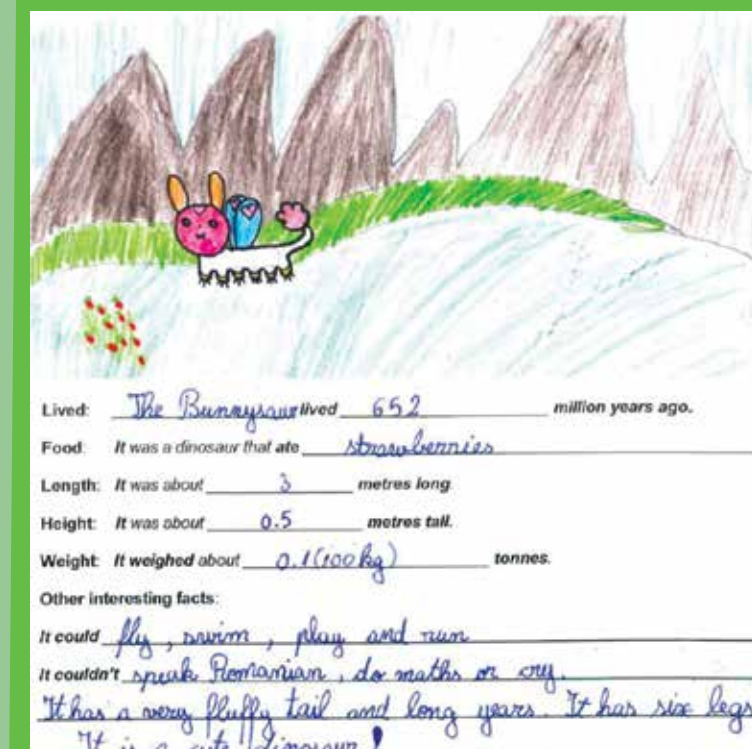 Lived: The Bunnysaur lived 652 million years ago.
Food: It was a dinosaur that ate strawberries
Length: It was about 3 metres long.
Height: It was about 0.5 metres tall.
Weight: It weighed about 0.1 (100 kg) tonnes.
Other interesting facts:
It could fly, swim, play and run
It couldn't speak Romanian, do maths or cry.
It has a very fluffy tail and long years. It has six legs
It is a cute dinosaur!